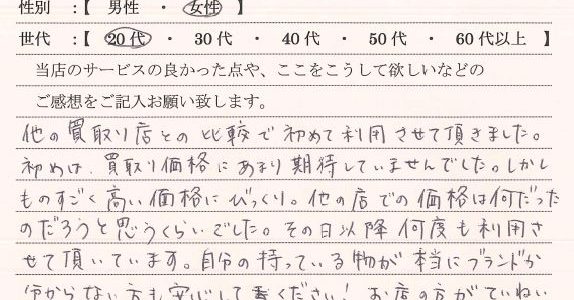 性別 :【 男性 ・ 女性 】
世代 :【 20代 ・ 30代 ・ 40代 ・ 50代 ・ 60代以上 】
当店のサービスの良かった点や、ここをこうして欲しいなどの
ご感想をご記入お願い致します。
他の買取り店との比較で初めて利用させて頂きました。
初めは、買取り価格にあまり期待していませんでした。しかし
ものすごく高い価格にびっくり。他の店での価格は何だった
のだろうと思うくらいでした。その日以降何度も利用さ
せて頂いています。自分の持っている物が本当にブランドか
分からない方も安心して下さい！お店の方がていねい